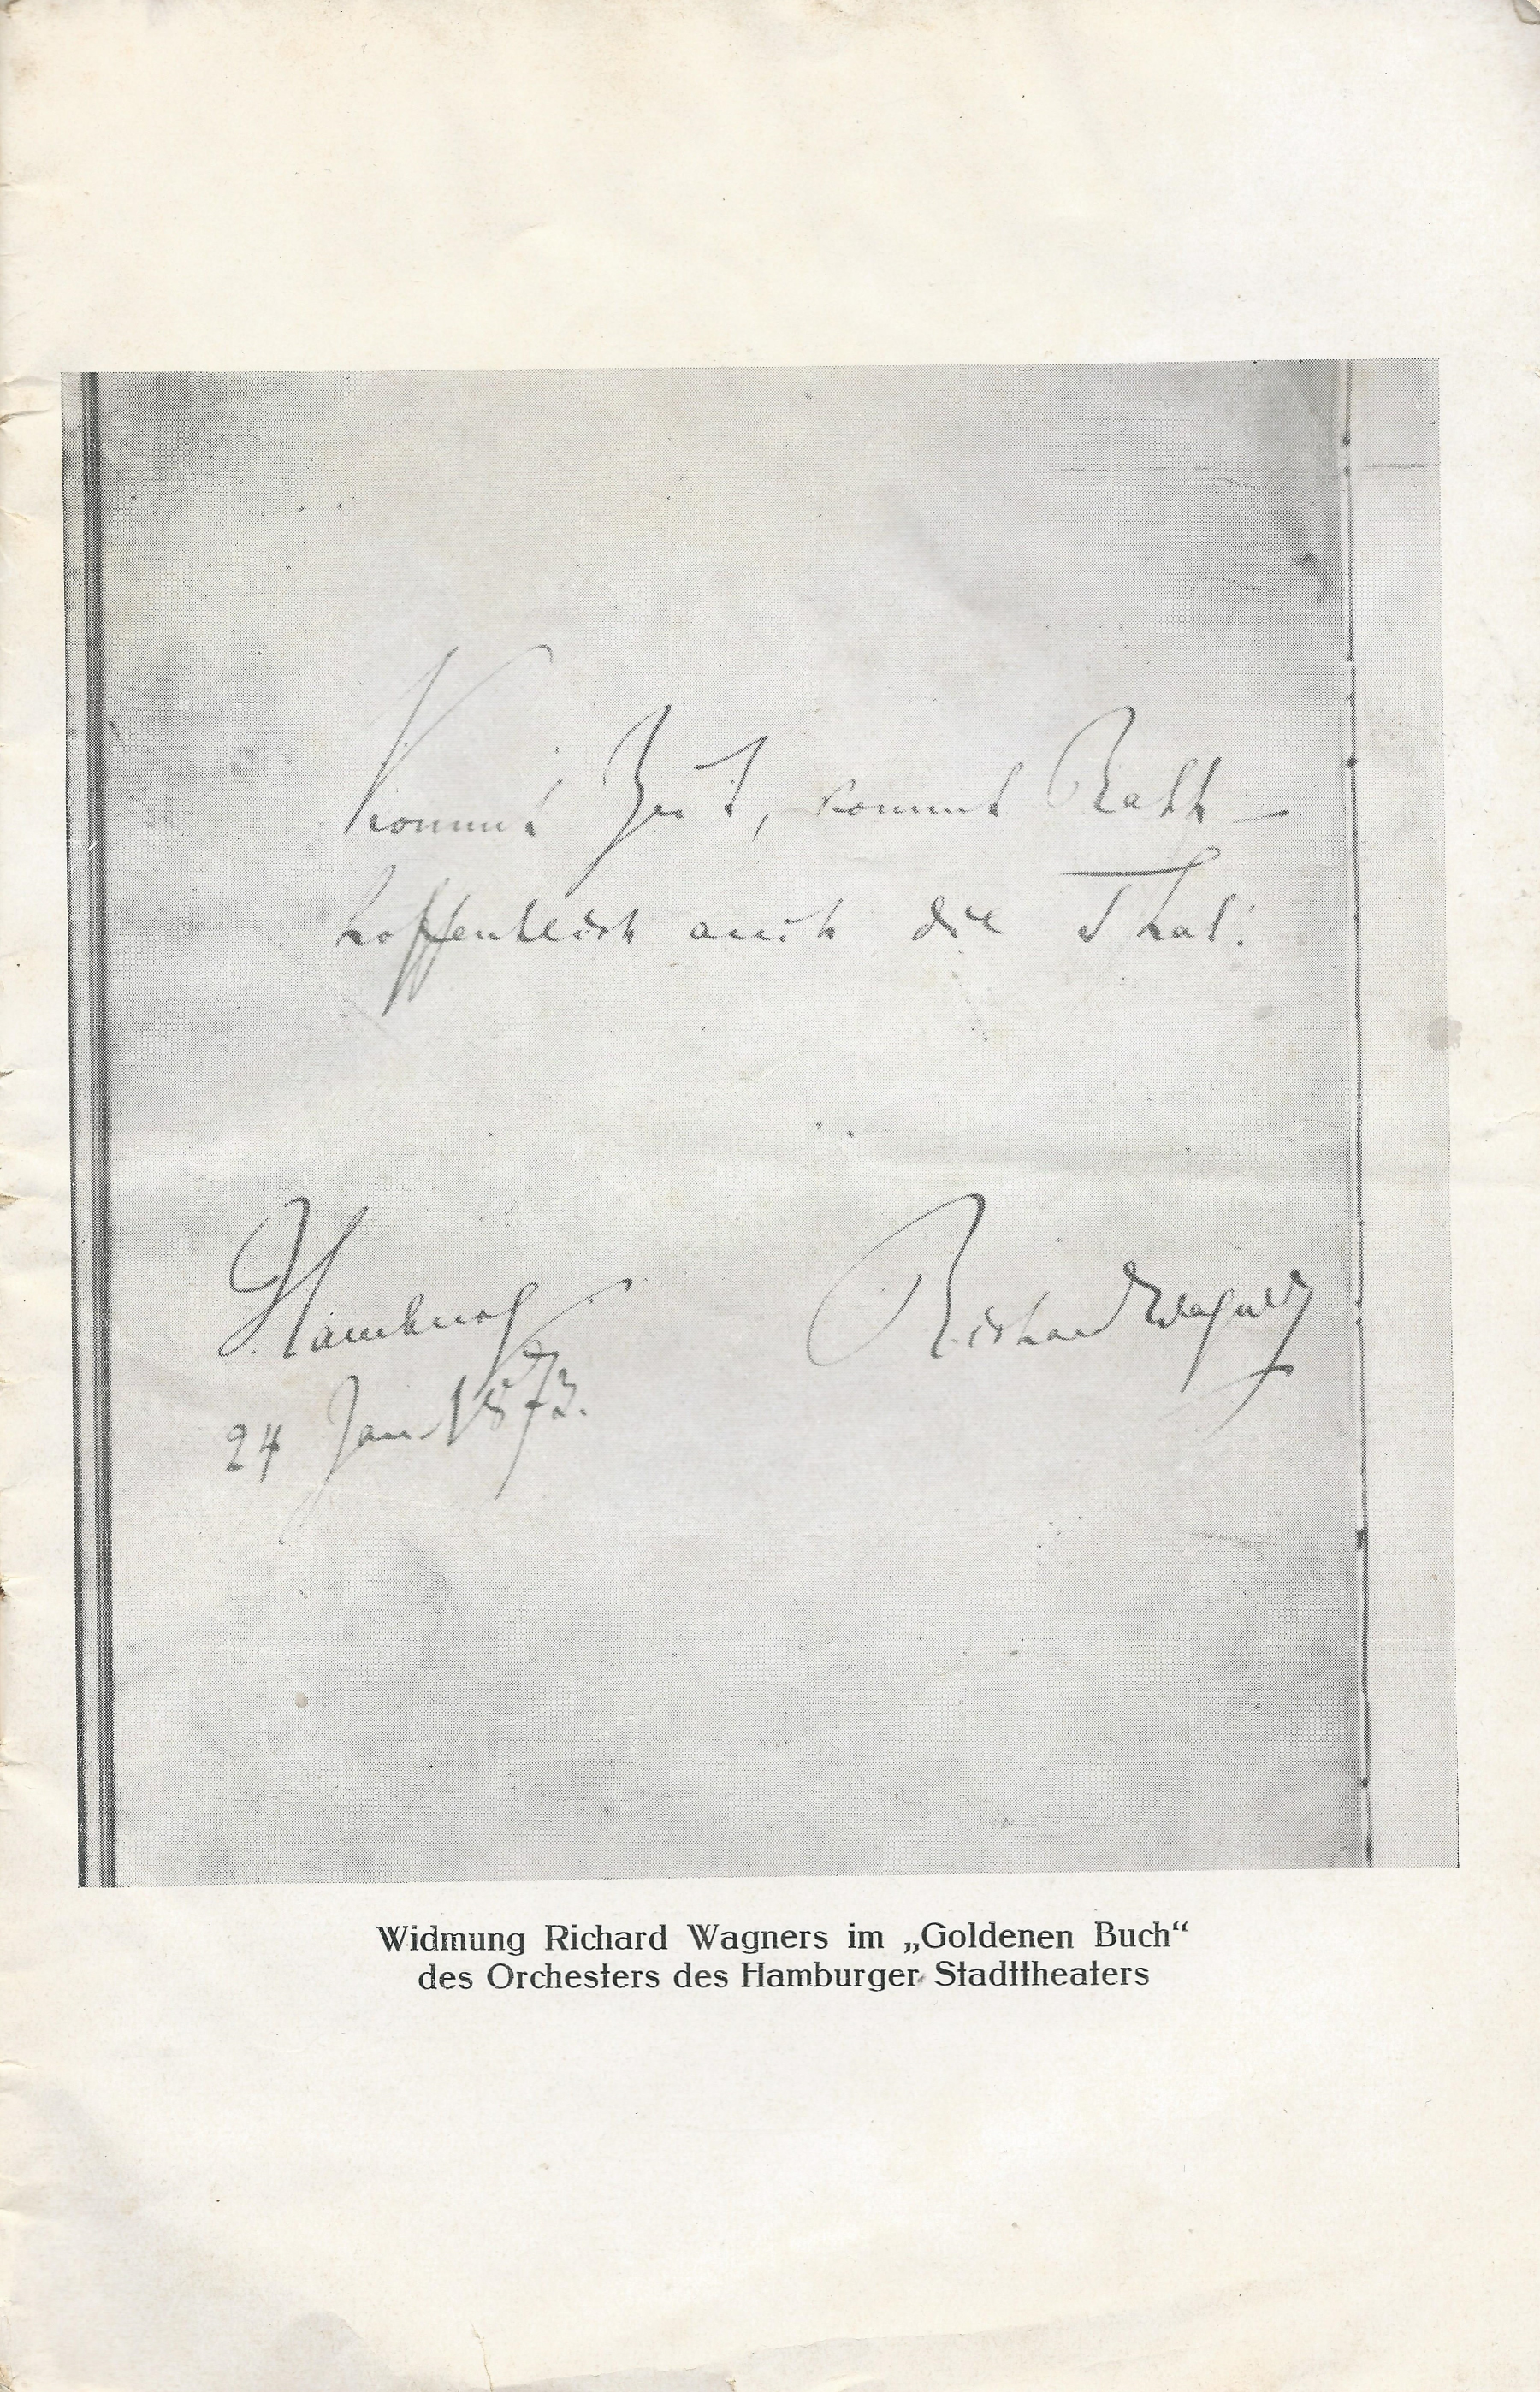 Kommt Zeit, kommt Rath –
hoffentlich auch die That!
Hamburg
24 Jan. 1873.
Richard Wagner
Widmung Richard Wagners im „Goldenen Buch“
des Orchesters des Hamburger Stadttheaters